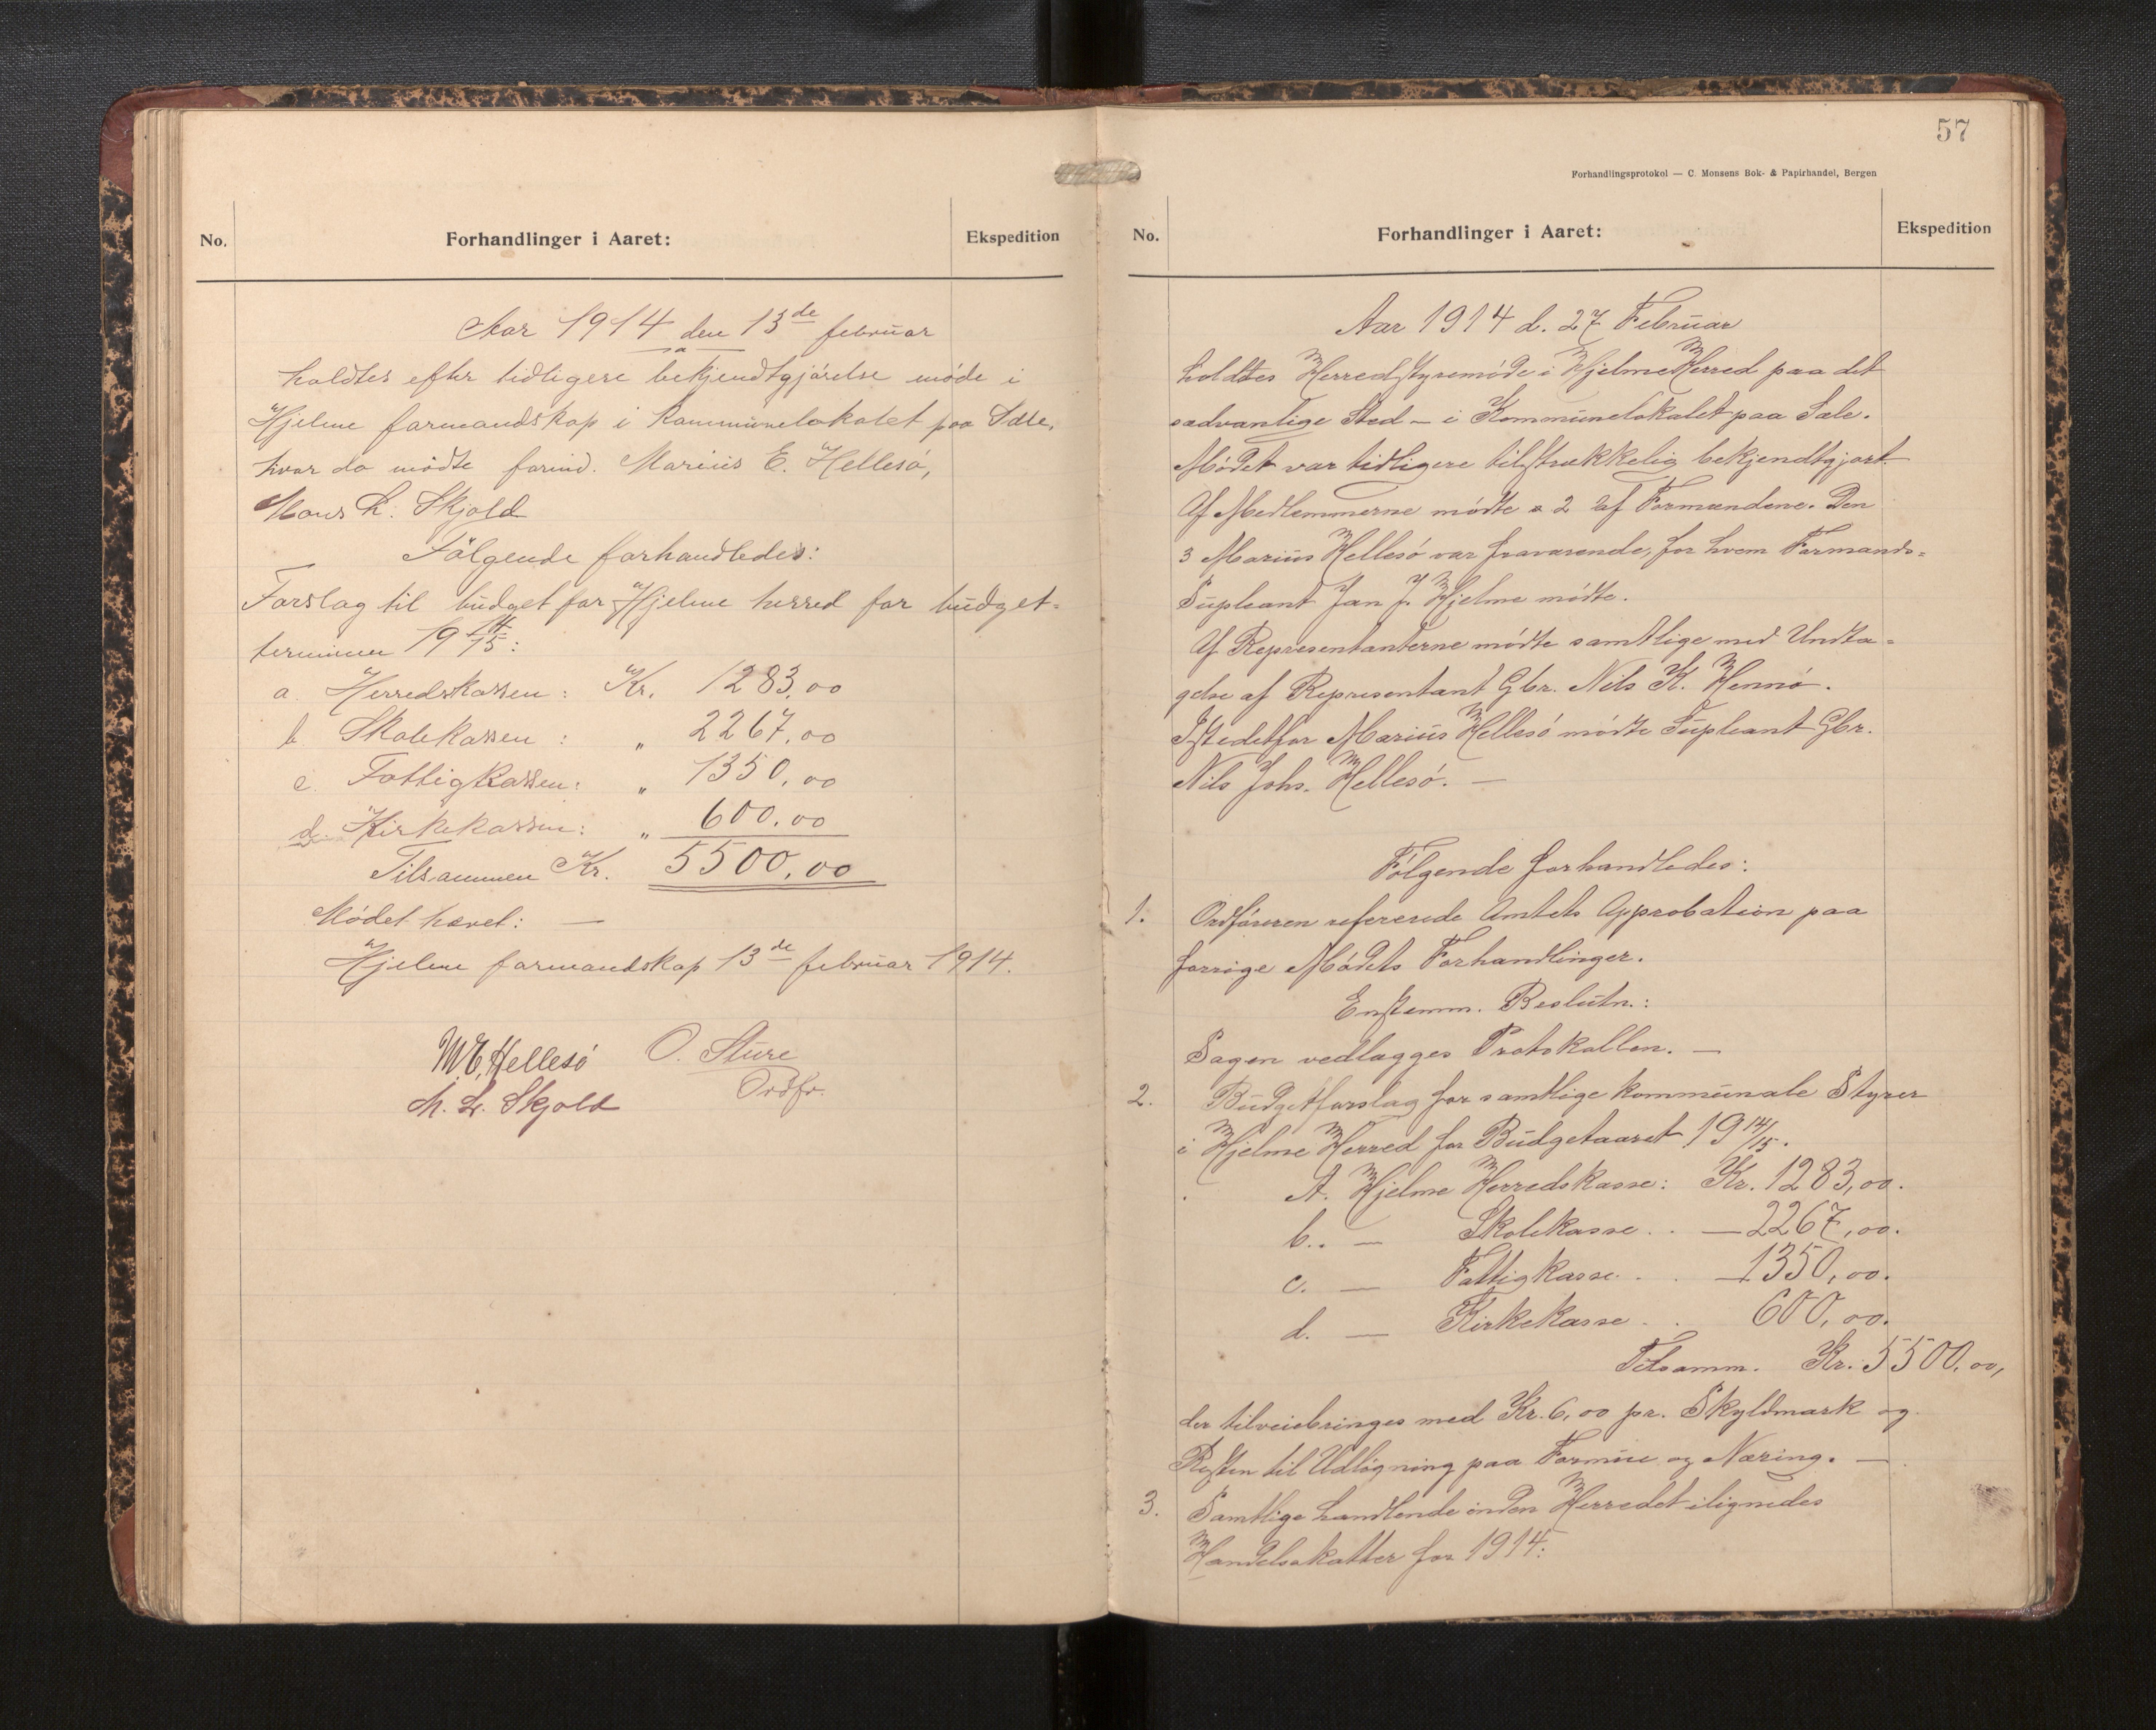 No.
Forhandlinger i Aaret:
Ekspedition
Aar 1914 den 13de februar
holdtes efter tidligere bekjendtgjörelse möde i
Hjelme formandskap i kommunelokalet paa Sæle,
hvor da mödte formd. Marius E. Hellesö,
Mons L. Skjold
Fölgende forhandledes:
Forslag til budget for Hjelme herred for budget-
terminen 1914/15:
a. Herredskassen: Kr. 1283,00
b Skolekassen: „ 2267,00
c. Fattigkassen: „ 1350,00
d. Kirkekassen: „ 600,00
Tilsammen Kr. 5500,00
Mödet hævet: —
Hjelme formandskap 13de februar 1914.
M.E. Hellesö O. Sture
M. L. Skjold Ordfr.
57
Forhandlingsprotokol — C. Monsens Bok- & Papirhandel, Bergen
No.
Forhandlinger i Aaret:
Ekspedition
Aar 1914 d. 27 Februar
holdtes Herredstyremöde i Hjelme Herred paa det
sædvanlige Sted – i Kommunelokalet paa Sæle.
Mödet var tidligere tilstrækkelig bekjendtgjort.
Af Medlemmerne mödte 2 af Formændene. Den
3 Marius Hellesö var fraværende, for hvem Formands-
Supleant Jan J. Hjelme mödte.
Af Representanterne mödte samtlige med Undta-
gelse af Representant Gbr. Nils K. Hennö.
Istedetfor Marius Hellesö mödte Supleant Gbr.
Nils Johs. Hellesö. —
Fölgende forhandledes:
1. Ordföreren refererede Amtets Approbation paa
forrige Mödets Forhandlinger.
Enstemm. Beslutn.:
Sagen vedlægges Protokollen. —
2. Budgetforslag for samtlige kommunale Styrer
i Hjelme Herred for Budgetaaret 1914/15.
A. Hjelme Herredskasse: Kr. 1283,00.
b. — Skolekasse . . — 2267,00.
c. — Fattigkasse . . — 1350,00.
d. — Kirkekasse . . 600,00.
Tilsamm. Kr. 5500,00,
der tilveiebringes med Kr. 6,00 pr. Skyldmark og
Resten til Udligning paa Formue og Næring. —
3. Samtlige handlende inden Herredet ilignedes
Handelsskatter for 1914: